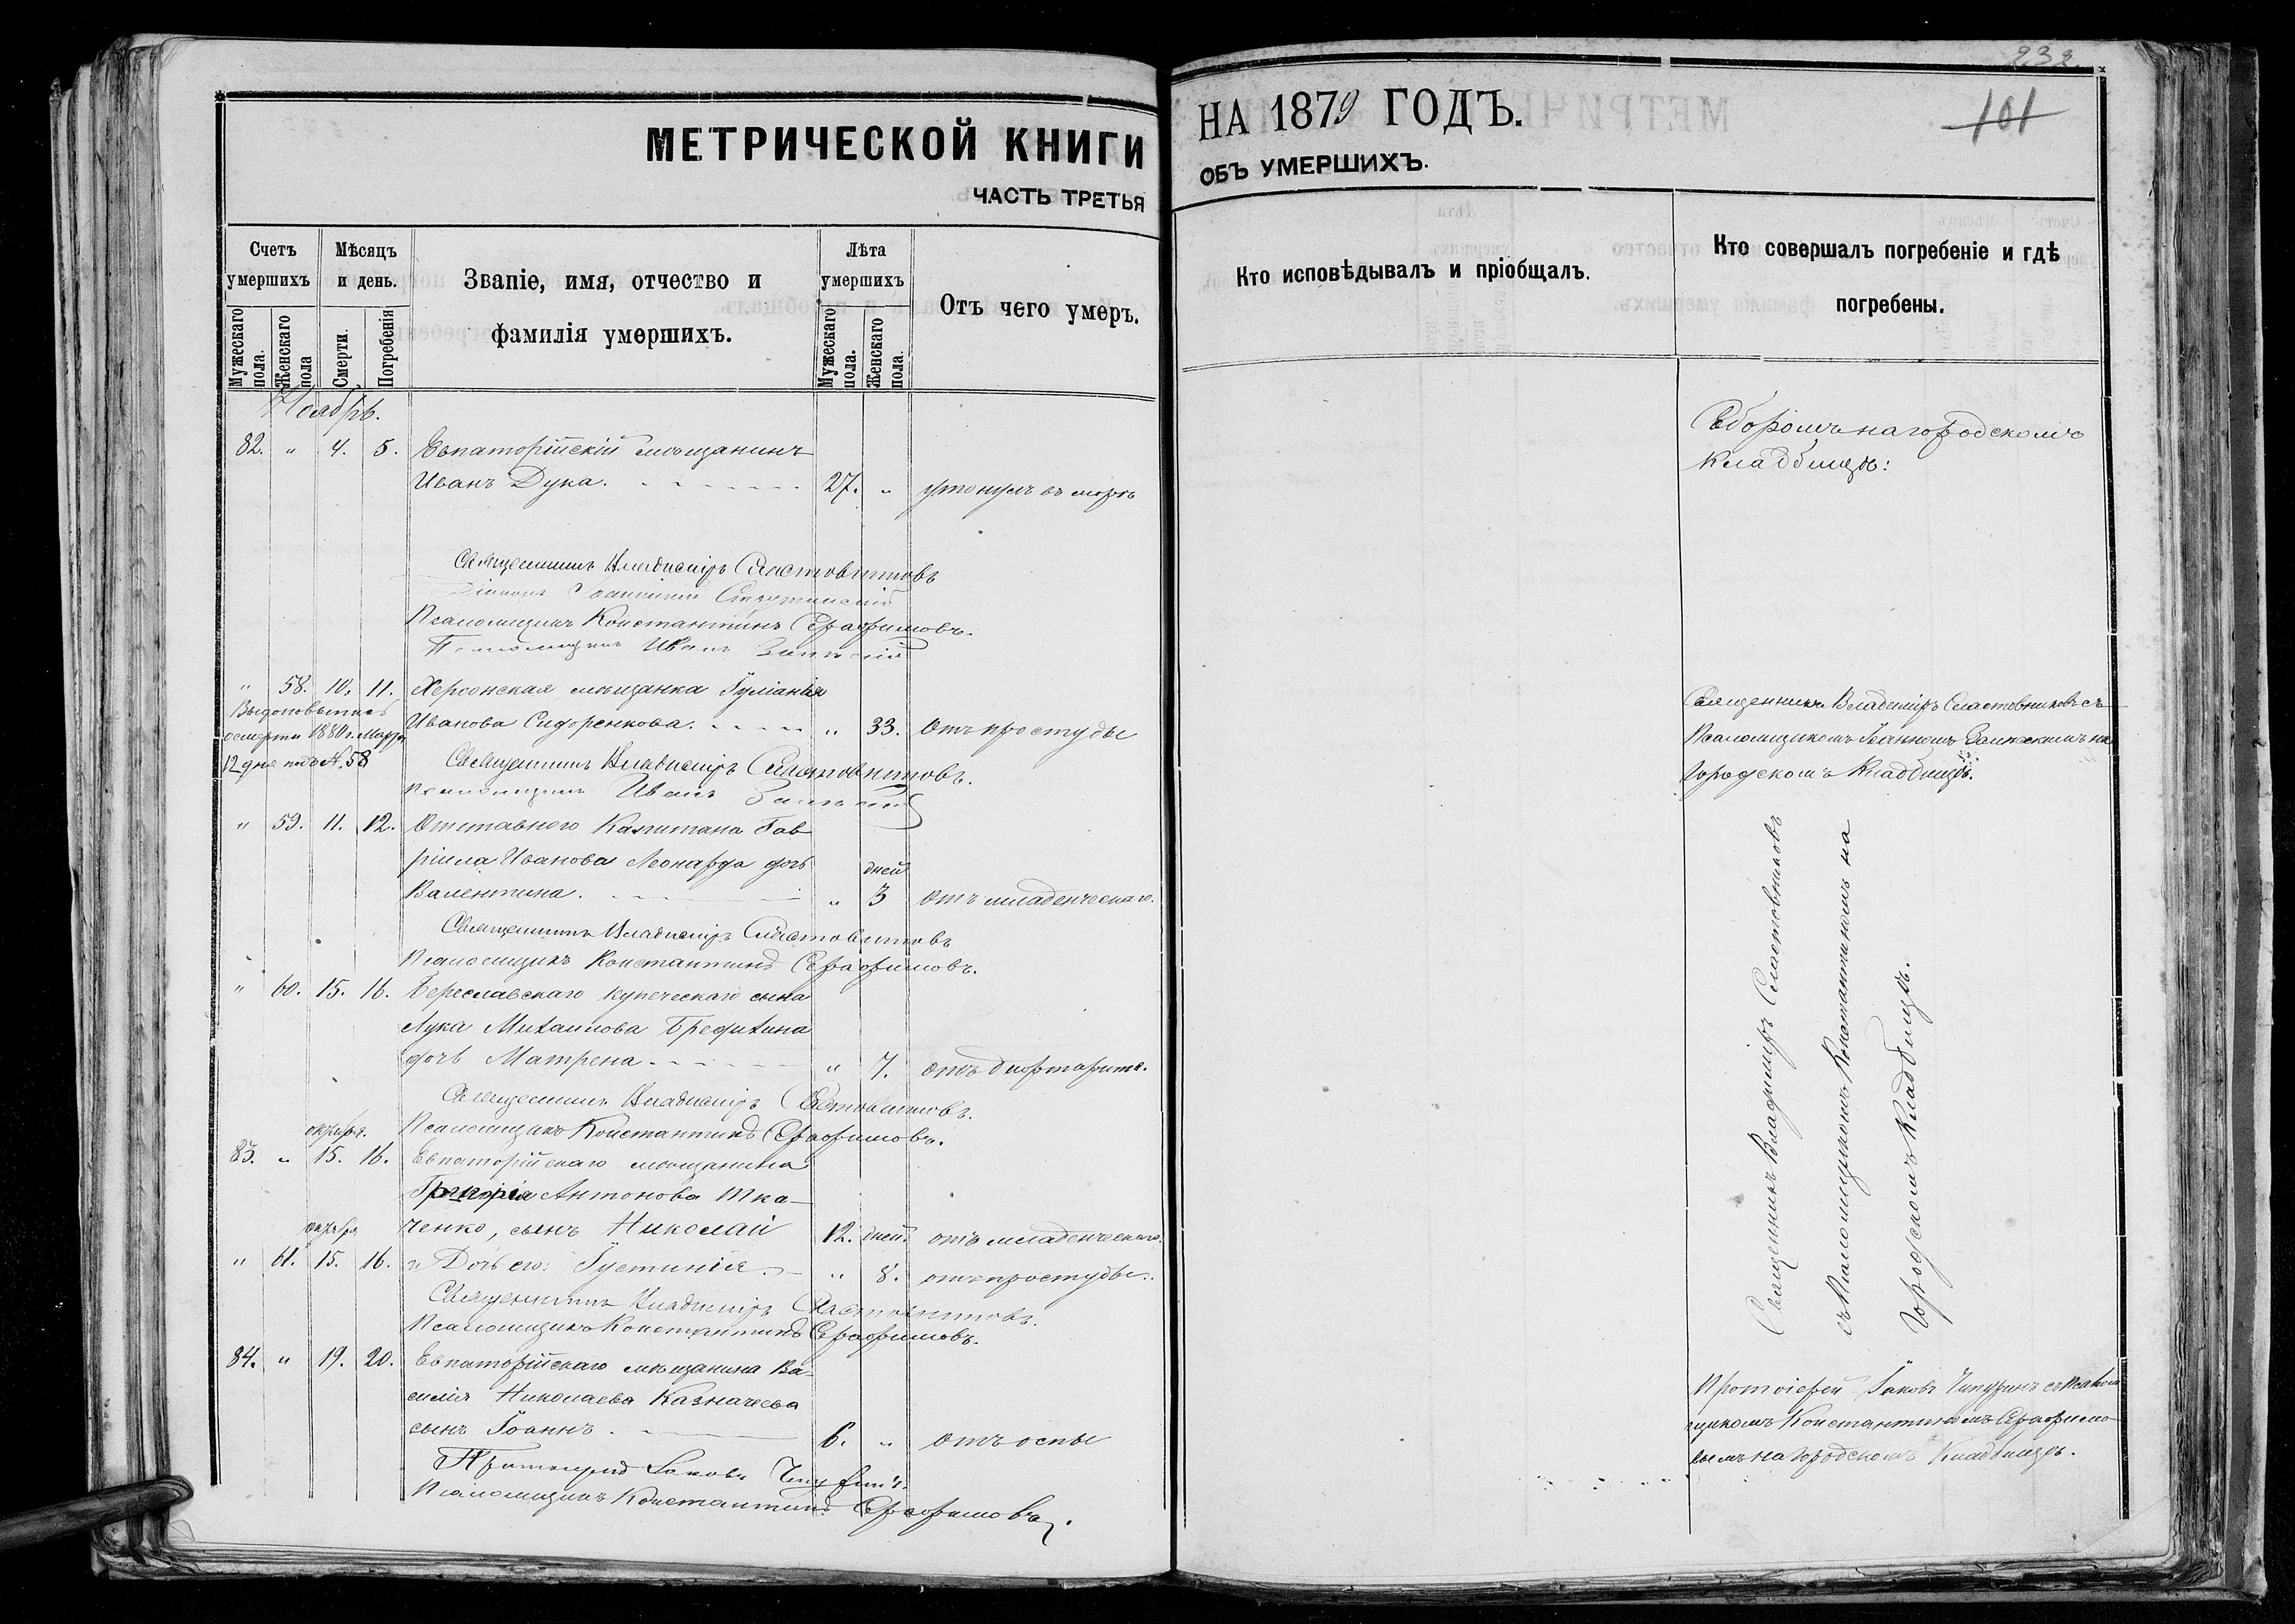 МЕТРИЧЕСКОЙ КНИГИ
ЧАСТЬ ТРЕТЬЯ
Счетъ умершихъ
Мужескаго пола.
Женскаго пола
Мѣсяцъ и день.
Смерти.
Погребенія
Званіе, имя, отчество и
фамилія умершихъ.
Лѣта умершихъ
Мужескаго пола.
Женскаго пола.
Отъ чего умеръ.
Ноябрь.
82. " 4. 5. Евпаторійскій мѣщанинъ
Иванъ Дука. 27. " утонулъ въ морѣ
Священникъ Владиміръ Сластовниковъ
Діаконъ
Псаломщикъ Константинъ Серафимовъ.
Псаломщикъ Иванъ
" 58. 10. 11. Херсонская мѣщанка Іуліанія
Иванова Сидоренкова. " 33. отъ простуды
о смерти 1880 г. Марта
12 дня подъ № 58
Священникъ Владиміръ Сластовниковъ.
Псаломщикъ Иванъ
" 59. 11. 12. Отставного Капитана Гав
ріила Иванова Леонарда дочь
Валентина. " дней 3 отъ младенческаго.
Священникъ Владиміръ Сластовниковъ
Псаломщикъ Константинъ Серафимовъ.
" 60. 15. 16. Береславскаго купеческаго сына
Лука Михаилова Бредихина
дочь Матрена " 7. отъ дифтарита.
Священникъ Владиміръ Сластовниковъ.
Псаломщикъ Константинъ Серафимовъ.
83. " 15. 16. Евпаторійскаго мѣщанина
Григорія Антонова Тка-
ченко, сынъ Николай 12. дней. отъ младенческаго.
" 61. 15. 16. и Дочь его: Іустинія " 8. отъ простуды.
Священникъ Владиміръ Сластовниковъ.
Псаломщикъ Константинъ Серафимовъ.
84. " 19. 20. Евпаторійскаго мѣщанина Ва-
силія Николаева Казначеева
сынъ Іоаннъ. 6. " отъ оспы
Протоіерей Іаковъ Чепуринъ.
Псаломщикъ Константинъ Серафимовъ.
232
101
НА 1879 ГОДЪ.
ОБЪ УМЕРШИХЪ.
Кто исповѣдывалъ и пріобщалъ.
Кто совершалъ погребеніе и гдѣ
погребены.
Соборомъ на городскомъ
Кладбищѣ:
Священникъ Владиміръ Сластовниковъ съ
Псаломщикомъ Іоанномъ на
Городскомъ Кладбищѣ.
Священникъ Владиміръ Сластовниковъ
съ Псаломщикомъ Константиномъ на
Городскомъ Кладбищѣ.
Протоіерей Іаковъ Чепуринъ съ Псалом
щикомъ Константиномъ Серафимо-
вымъ на Городскомъ Кладбищѣ.